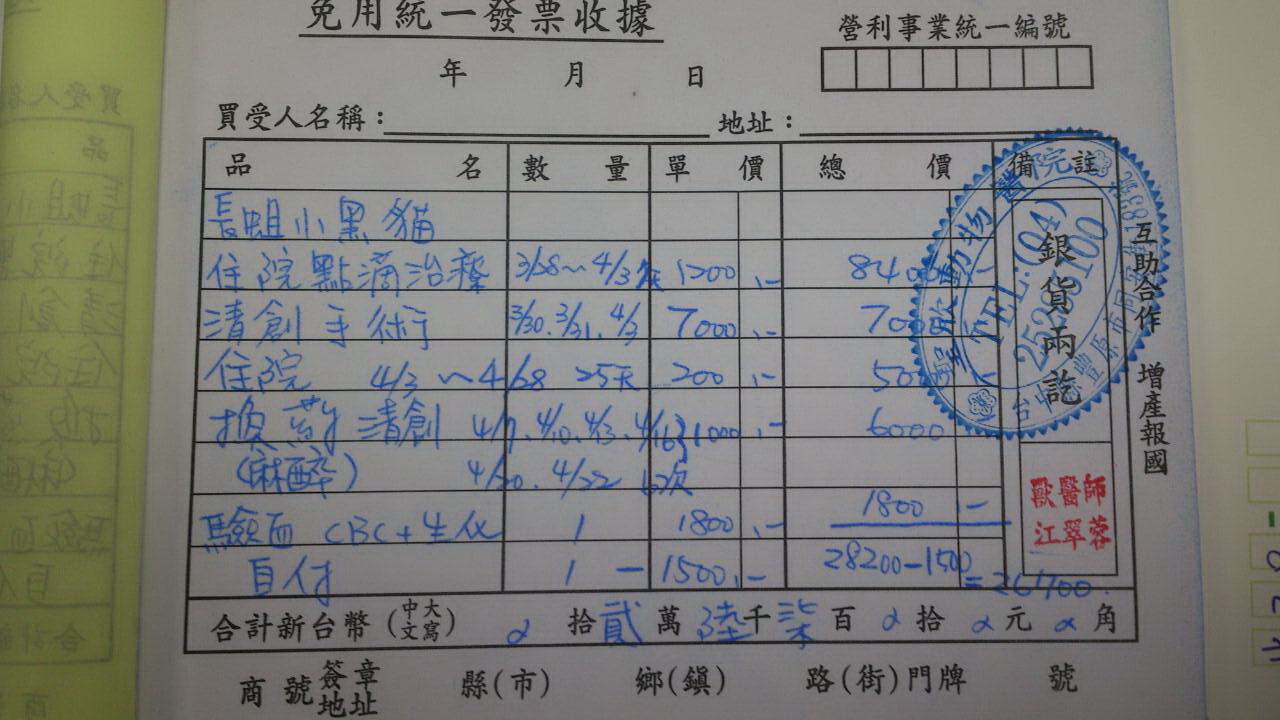 免用統一發票收據
營利事業統一編號
年 月 日
買受人名稱： 地址：
品名 數量 單價 總價 備註
長姐小黑貓
住院點滴治療 3/28～4/3 1200,- 8400,-
清創手術 3/30.3/31.4/3 7000,- 7000,-
住院 4/3～4/28 25天 200,- 5000,-
換藥清創 4/7.4/10.4/13.4/16 1000,- 6000
(麻醉) 4/20.4/22 6次
驗血 CBC+生化 1 1800,- 1800,-
自付 1 -1500,- 28200-1500=26700
合計新台幣(中文大寫) 拾貳萬陸千柒百 拾 元 角
商號簽章地址 縣(市) 鄉(鎮) 路(街)門牌 號
銀貨兩訖
動物醫院
TEL:(04)
25293100
獸醫師
江翠蓉
互助合作 增產報國